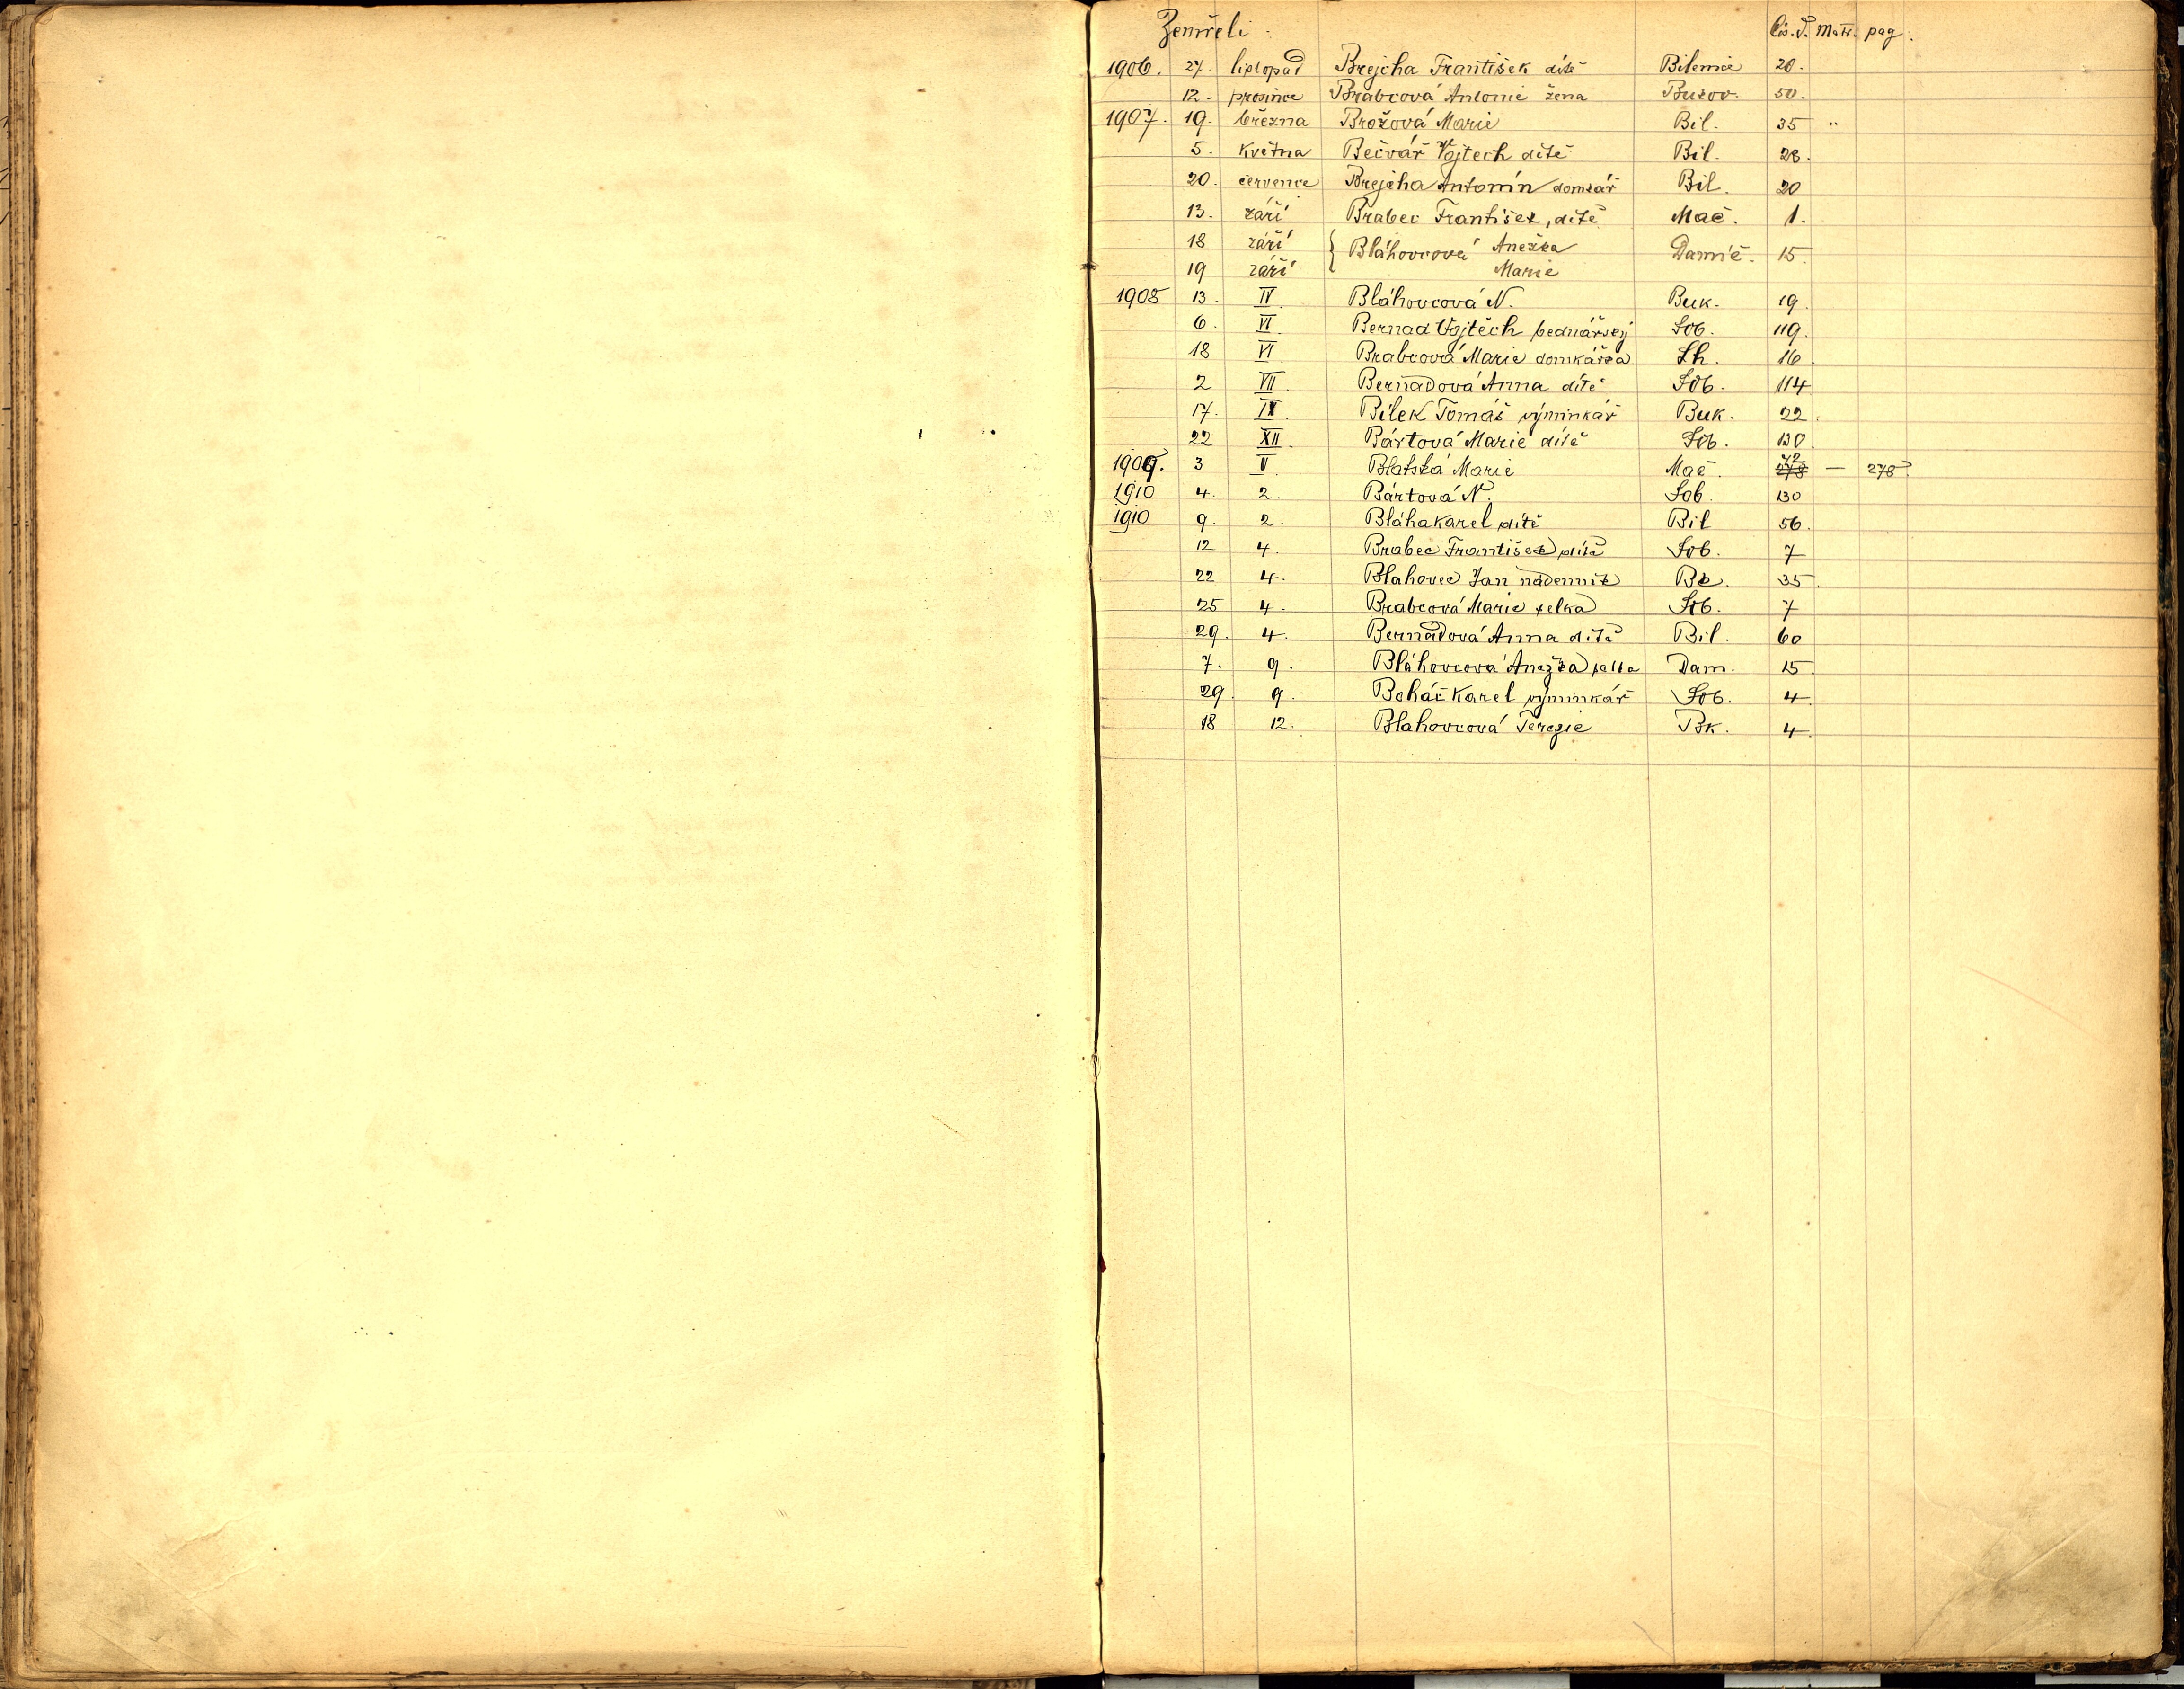 Zemřeli. Čís. d. Matr. pag.
1906. 27. listopad Brejcha František dítě Bilenice 20.
12. prosince Brabcová Antonie žena Bukov. 50.
1907. 19. března Brožová Marie Bil. 35 "
5. května Bečvář Vojtech dítě Bil. 28.
20. července Brejcha Antonín domkář Bil. 20
13. září Brabec František, dítě Mač. 1.
18 září { Bláhovcová Anežka Damíč. 15.
19 září Marie
1908 13. IV. Bláhovcová N. Buk. 19.
6. VI. Bernad Vojtěch bednářský Sob. 119.
18 VI Brabcová Marie domkářka Lh. 16.
2 VII. Bernadová Anna dítě Sob. 114
17. IX. Bílek Tomáš výminkář Buk. 22.
22 XII. Bártová Marie dítě Sob. 130.
1909. 3 V. Blatská Marie Mač. 278 72 — 278.
1910 4. 2. Bártová N. Sob. 130
1910 9. 2. Bláha Karel dítě Bil 56.
12 4. Brabec František dítě Sob. 7
22 4. Blahovec Jan nádenník Bk. 35.
25 4. Brabcová Marie Sob. 7
29. 4. Bernadová Anna dítě Bil. 60
7. 9. Bláhovcová Anežka Dam. 15.
29. 9. Boháč Karel výminkář Sob. 4.
18 12. Blahovcová Terezie Bk. 4.